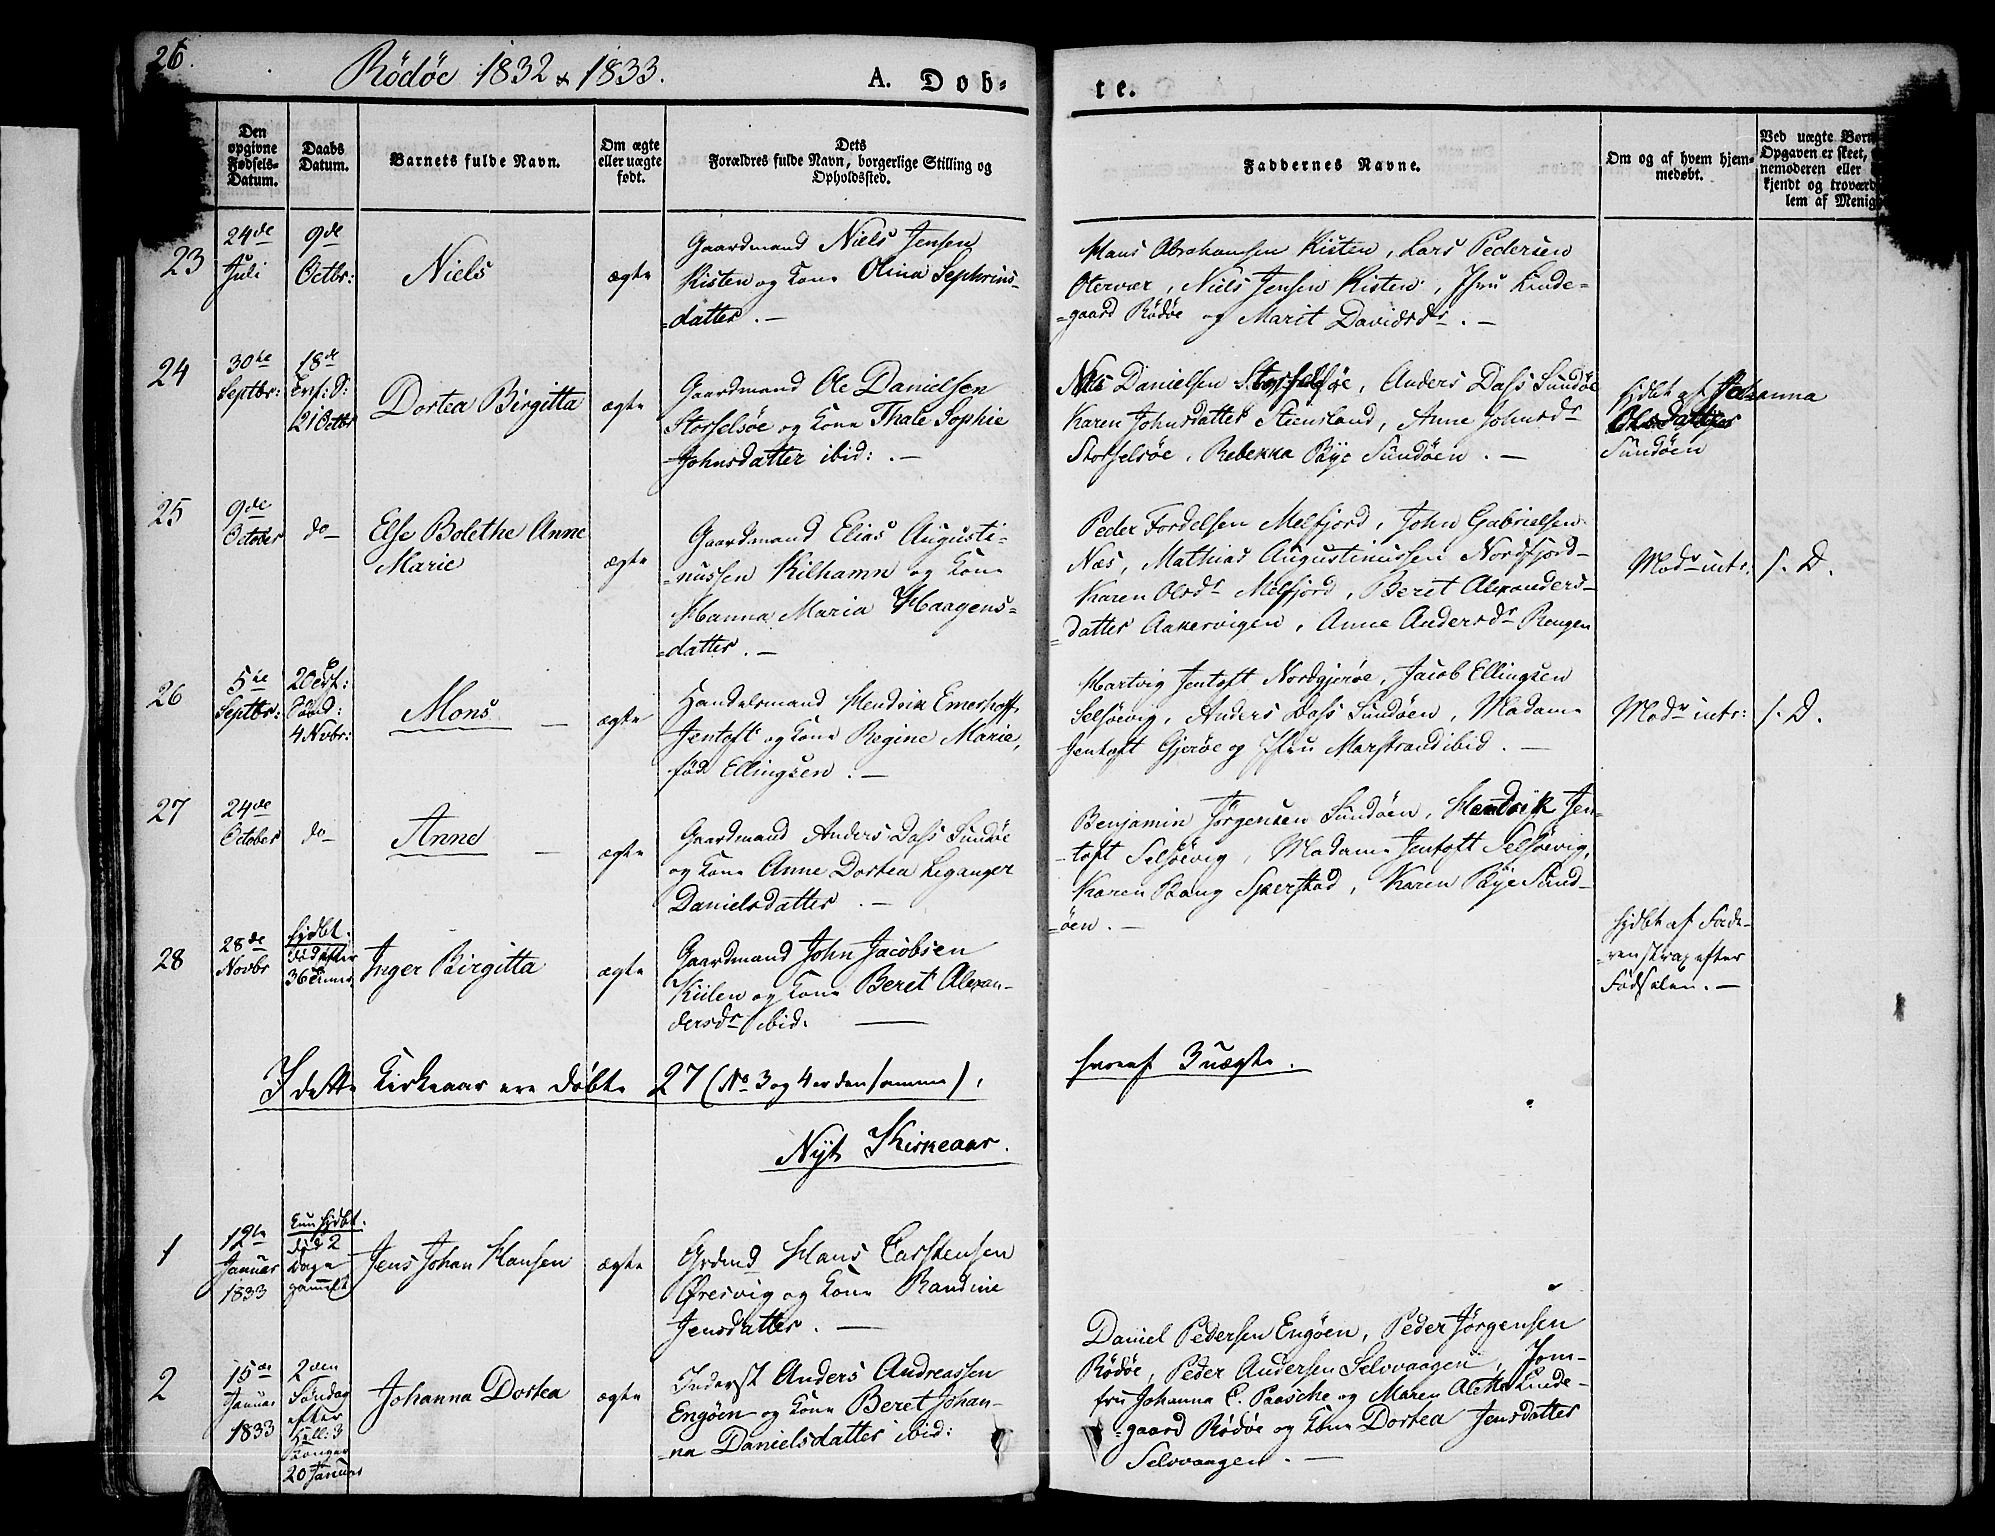 26.
Rödöe 1832 & 1833.
A. Døb-
te.
Den opgivne Fødsels-Datum.
Daabs Datum.
Barnets fulde Navn.
Om ægte eller uægte født.
Dets Forældres fulde Navn, borgerlige Stilling og Opholdssted.
Faddernes Navne.
Om og af hvem hjem-medøbt.
Ved uægte Børn
Opgaven er skeet,
nemoderen eller
kjendt og troværd
lem af Menig
23
24de
Juli
9de
Octbr:
Niels
ægte
Gaardmand Niels Jensen
Kisten og Kone Olina Sephrins-
=datter. —
Hans Abrahamsen Kisten, Lars Pedersen
Otervær, Niels Jensen Kisten, Jfru Linde-
=gaard Rödöe og Marit Davidsdr. —
24
30te
Septbr:
18de
21 Octbr
Dortea Birgitta
ægte
Gaardmand Ole Danielsen
Storselsöe og Kone Thale Sophie
Johnsdatter ibid: —
Danielsen Storselsöe, Anders Dass Sundöe
Karen Johnsdatter Steensland, Anne Johnsdr
Storselsöe, Rebekka Bye Sundöen. —
hjdbt af Johanna
Olsdatter
Sundöen
25
9de
October
do
Else Bolethe Anne
Marie
ægte
Gaardmand Elias Augusti-
=nussen Kilhamn og Kone
Hanna Maria Haagens-
=datter. —
Peder Fordelsen Melfjord, John Gabrielsen
Næs, Mathias Augustinussen Nordfjord
Karen Olsdr Melfjord, Beret Alexanders-
=datter Aakervigen, Anne Andersdr Rengen
Modr intr: s. D.
26
5te
Septbr:
4 Novbr:
Mons
ægte
Handelsmand Hendrik Emerhoff
Jentoft og Kone Regine Marie,
fød Ellingsen. —
Hartvig Jentoft Nordgjeröe, Jacob Ellingsen
Selsöevig, Anders Dass Sundöen, Madame
Jentoft Gjeröe og Jfru Marstrand ibid. —
Modr intr: s. D.
27
24de
October
do
Anne
ægte
Gaardmand Anders Dass Sundöe
og Kone Anne Dortea Leganger
Danielsdatter. —
Benjamin Jörgensen Sundöen, Hendrik Jen-
=toft Selsöevig, Madame Jentoft Selsöevig,
Karen Bang Sperstad, Karen Bye Sund-
=öen. —
28
28de
Novbr
hjdbt.
død efter
36 Timer
Inger Birgitta
ægte
Gaardmand John Jacobsen
Kiilen og Kone Beret Alexan-
dersdr ibid. —
hjdbt af Fade-
=ren strax efter
Födselen. —
I dette Kirkeaar ere døbte 27 (No 3 og 4 er den samme),
hvoraf 3 uægte.
Nyt Kirkeaar.
1
12te
Januar
1833
kun hjdbt.
død 2
Dage
gammelt
Jens Johan Hansen
ægte
Grdmd Hans Carstensen
Øresvig og Kone Randine
Jensdatter. —
2
15de
Januar
1833
2den
Søndag
efter
Hell: 3
Konger
20 Januar
Johanna Dortea
ægte
Inderst Anders Andreassen
Engöen og Kone Beret Johan-
=na Danielsdatter ibid:
Daniel Pedersen Engöen, Peder Jörgensen
Rödöe, Peder Andersen Selvvaagen, Jom-
fru Johanna C. Paasche og Maren Linde-
=gaard Rödöe og Kone Dortea Jensdatter
Selvvaagen. —